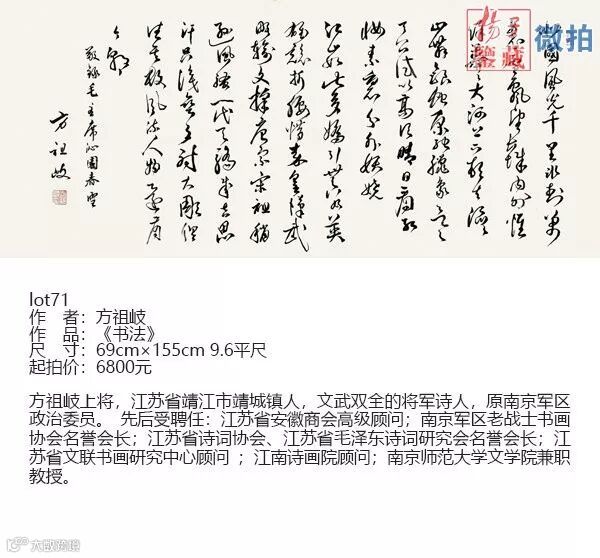 北國風光千里冰封萬
里雪飄望長城內外惟
餘莽莽大河上下頓失滔滔
山舞銀蛇原馳蠟象欲與
天公試比高須晴日看紅
妝素裹分外妖嬈
江山如此多嬌引無數英
雄競折腰惜秦皇漢武
略輸文采唐宗宋祖稍
遜風騷一代天驕成吉思
汗只識彎弓射大雕俱
往矣數風流人物還看
今朝
敬錄毛主席沁園春雪
方祖岐
鑒藏
微拍
lot71
作 者：方祖岐
作 品：《书法》
尺 寸：69cm×155cm 9.6平尺
起拍价：6800元
方祖岐上将，江苏省靖江市靖城镇人，文武双全的将军诗人，原南京军区
政治委员。 先后受聘任：江苏省安徽商会高级顾问；南京军区老战士书画
协会名誉会长；江苏省诗词协会、江苏省毛泽东诗词研究会名誉会长；江
苏省文联书画研究中心顾问 ；江南诗画院顾问；南京师范大学文学院兼职
教授。
大数跨境